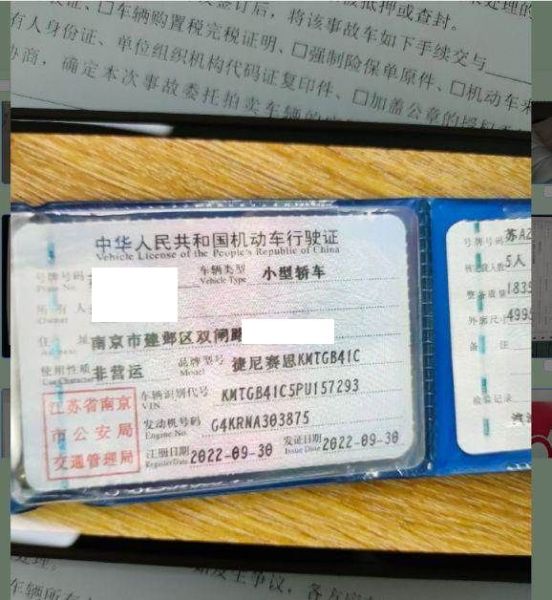 证、□车辆购置税完税证明、□强制险保单原件、□机动车来
有人身份证、单位组织机构代码证复印件、□加盖公章的授权委
签订后,将该事故车如下手续交与
协商,确定本次事故委托拍卖车辆的
中华人民共和国机动车行驶证
Vehicle License of the People's Republic of China
号牌号码
Plate No.
车辆类型 小型轿车
Vehicle Type
所有人
Owner
住 址 南京市建邺区双闸路
Address
使用性质 非营运
Use Character
品牌型号 捷尼赛思KMTGB41C
Model
江苏省南京
市公安局
交通管理局
车辆识别代号 KMTGB41C5PU157293
VIN
发动机号码 G4KRNA303875
Engine No.
注册日期 2022-09-30
Register Date
发证日期 2022-09-30
Issue Date
号牌号码 苏AZ
核定载人数 5人
整备质量 1835
外廓尺寸 4995
备 注
检验记录